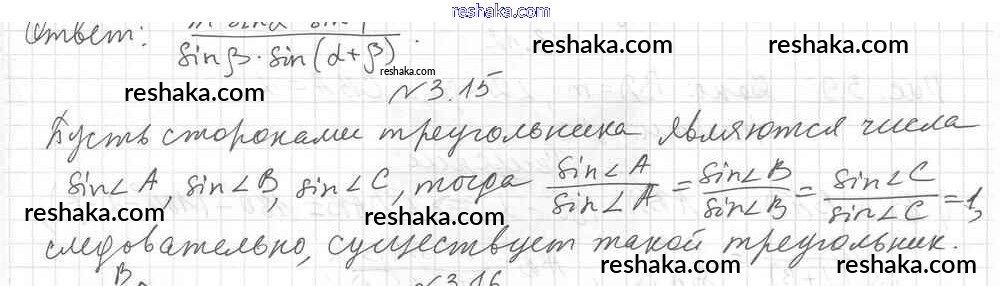 reshaka.com
Ответ:
sinβ·sin(α+β).
reshaka.com reshaka.com
reshaka.com
reshaka.com reshaka.com
№3.15
Пусть сторонами треугольника являются числа
sin∠A, sin∠B, sin∠C, тогда sin∠A/sin∠A = sin∠B/sin∠B = sin∠C/sin∠C = 1,
reshaka.com reshaka.com reshaka.com
следовательно, существует такой треугольник.
reshaka.com reshaka.com
B
№3.16
reshaka.com